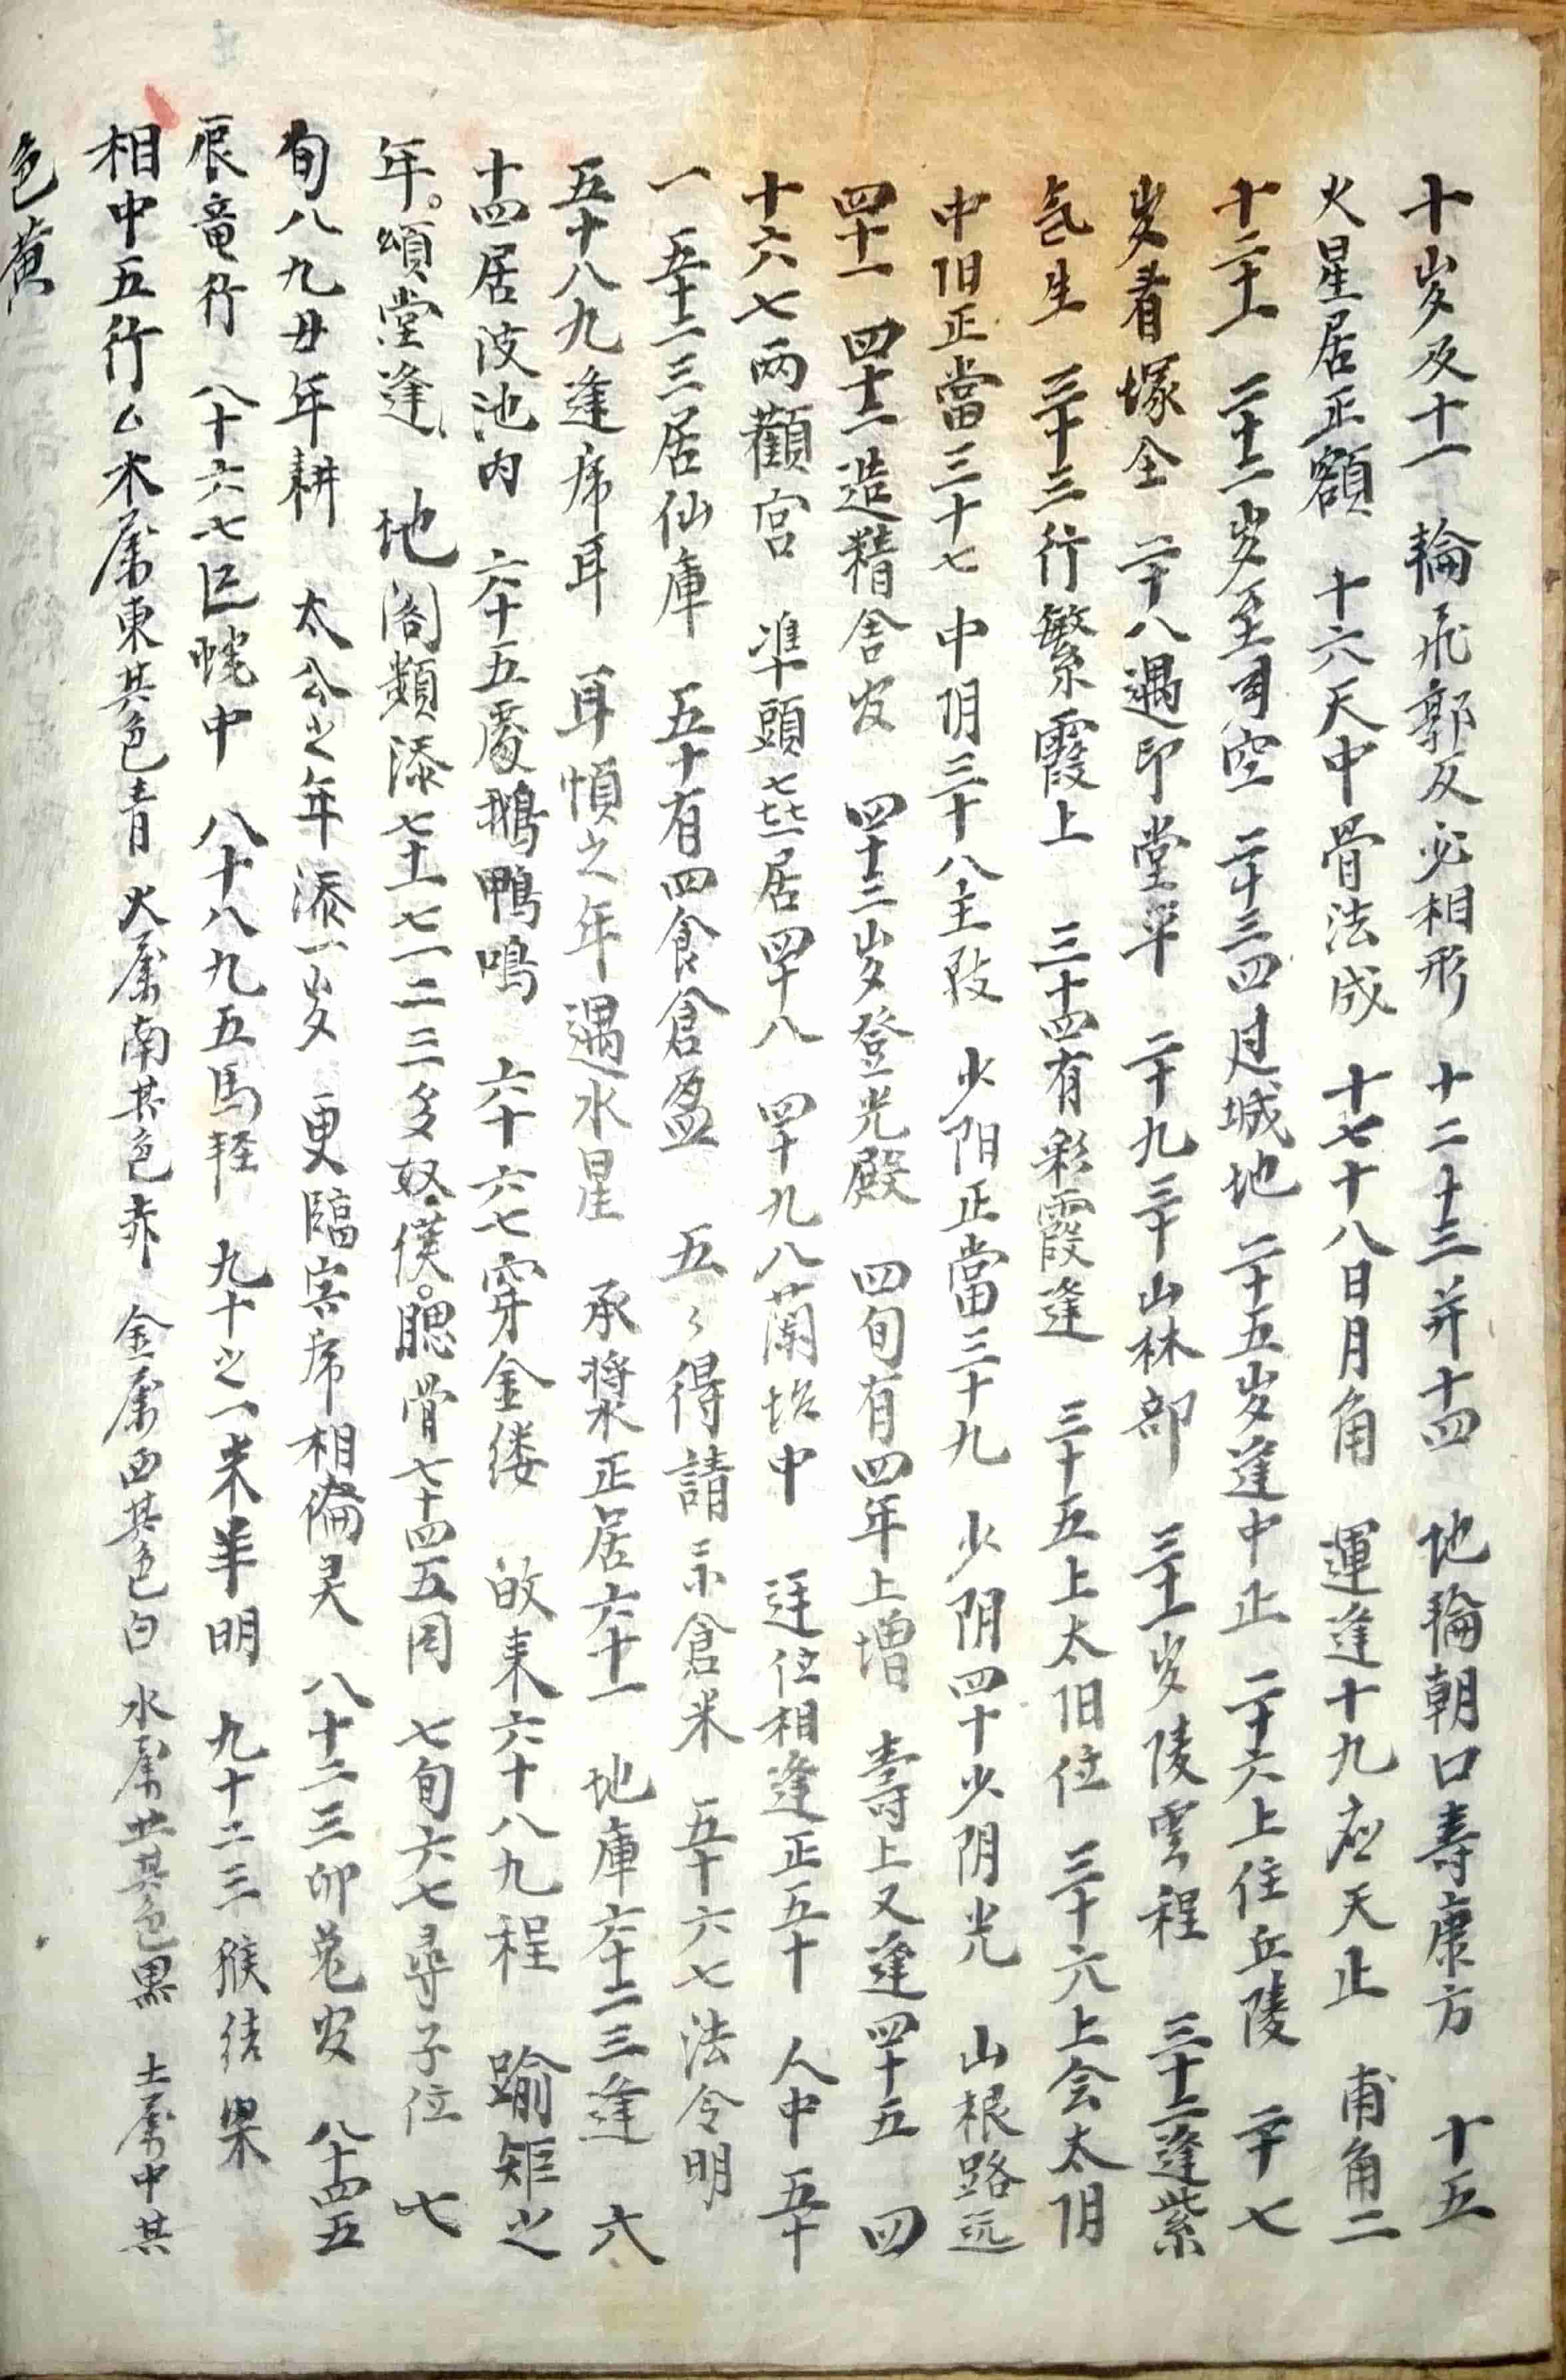 十岁及十一 輪飛郭反必相形 十二十三并十四 地輪朝口壽康方 十五
火星居正額 十六天中骨法成 十七十八日月角 運逢十九应天止 甫角二
十二十一 二十二岁至司空 二十三四过城地 二十五岁逢中正 二十六上住丘陵 二十七
岁看塚全 二十八遇印堂平 二十九三十山林部 三十一岁陵雲程 三十二逢紫
氣生 三十三行繁霞上 三十四有彩霞逢 三十五上太阳位 三十六上会太阴
中阳正當三十七 中阴三十八主 少阳正當三十九 少阴四十少阴光 山根路远
四十一 四十二造精舍发 四十三岁登光殿 四旬有四年上增 壽上又逢四十五 四
十六七两顴宫 準頭喜居四十八 四十九八蘭坮中 廷位相逢正五十 人中五十
一 五十二三居仙庫 五十有四食倉盈 五〻得請示倉米 五十六七法令明
五十八九逢席耳 耳順之年遇水星 承漿正居六十一 地庫六十二三逢 六
十四居波池内 六十五處鵝鴨鳴 六十六七穿金缕 故耒六十八九程 踰矩之
年。頌堂逢 地阁類添七十一 七一二三多奴僕。腮骨七十四五同 七旬六七尋子位 七
旬八九丑年耕 太公之年添一岁 更臨寅席相倫灵 八十二三卯兔发 八十四五
辰竜行 八十六七巳蛇中 八十八九五馬轻 九十之一未羊明 九十二三猴结果
相中五行厶木属東其色青 火属南其色赤 金属西其色白 水属北其色黑 土属中其
色黄